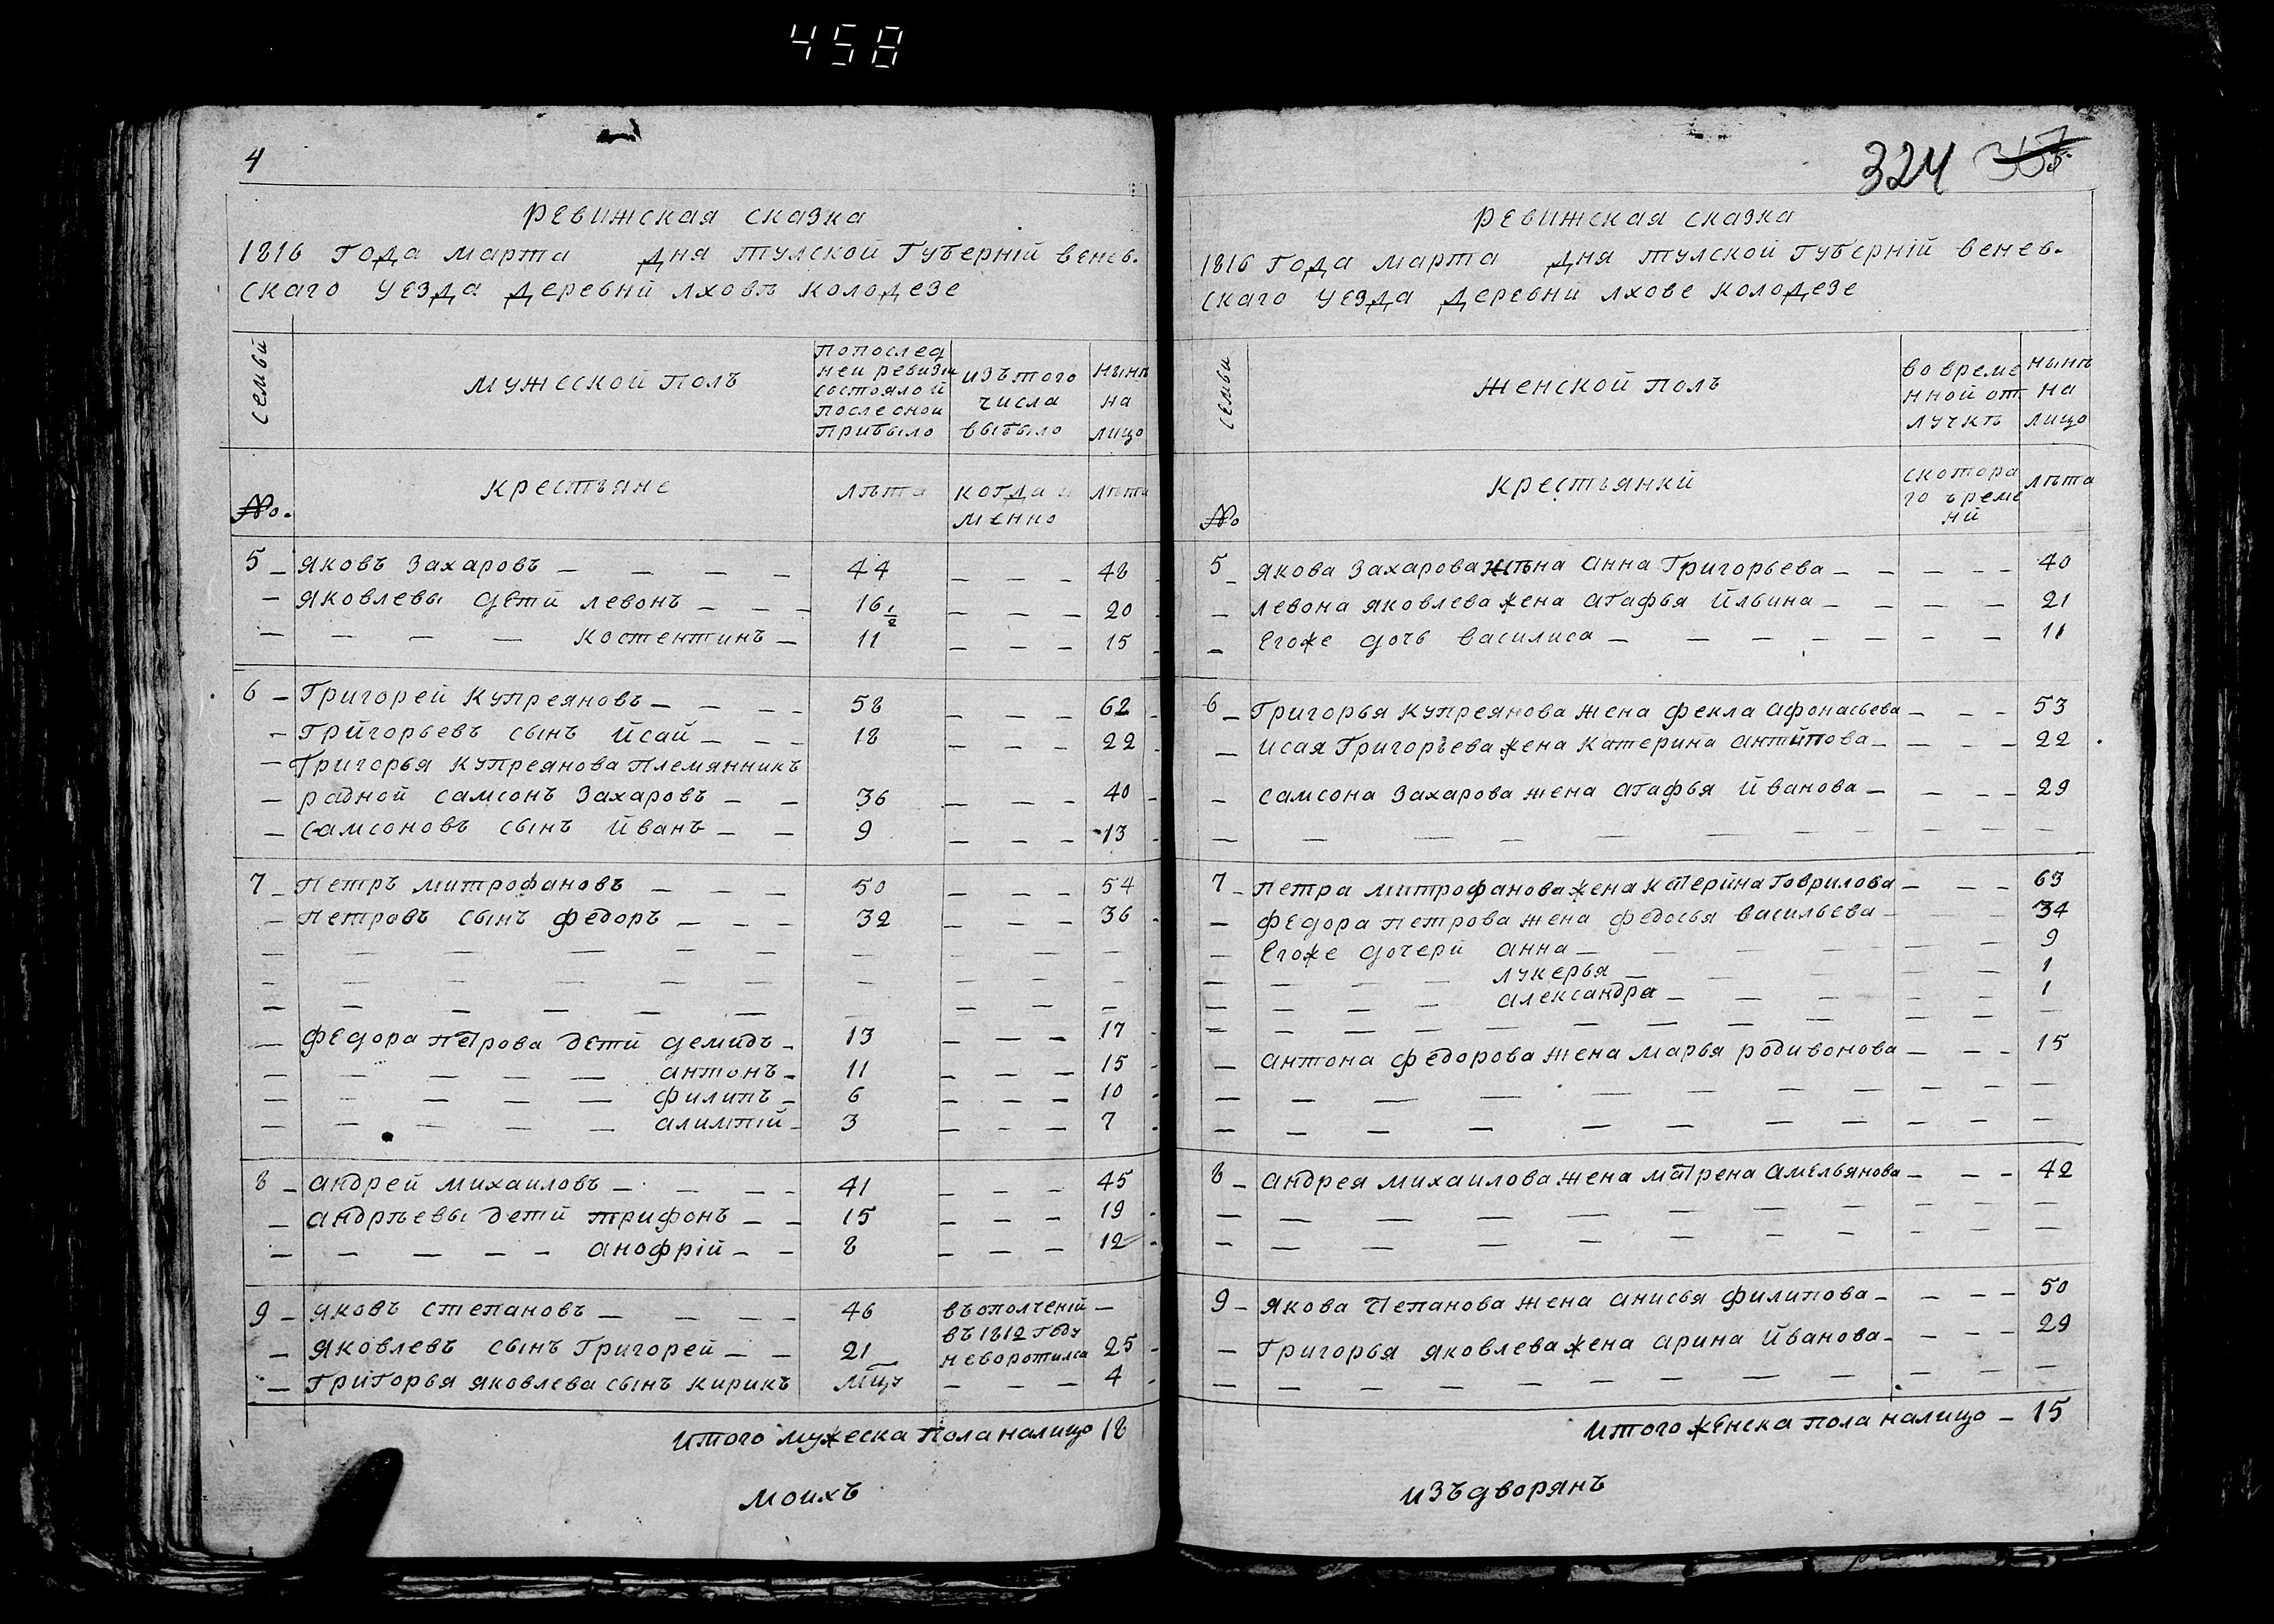 458
4
Ревижская сказка
1816 Года марта дня тулской Губерній венев.
скаго уезда деревнй лховъ колодезе
семьй
мужеской полъ
попослед
неи ревизи
состояло й
после оной
прибыло
изътого
числа
выбыло
нынъ
на
лицо
№.
крестьяне
лѣта
когда и
менно
лѣта
5 – яковъ захаровъ – – – – 44 – – – 48
– яковлевы детй левонъ – – – 16 1/2 – – – 20
– – – – костентинъ – 11 – – – 15
6 – Григорей купреяновъ – – – – 58 – – – 62
– Грйгорьевъ сынъ йсай – – – 18 – – – 22
– Григорья купреянова племянникъ
– радной самсонъ захаровъ – – 36 – – – 40
– самсоновъ сынъ йванъ – – 9 – – – 13
7 – петръ митрофановъ – – – 50 – – – 54
– петровъ сынъ федоръ – – – 32 – – – 36
– – – – – – – – – – –
– – – – – – – – – – –
– – – – – – – – – –
– федора петрова детй демидъ – 13 – – – 17
– – – – – антонъ – 11 – – – 15
– – – – – филипъ – 6 – – – 10
– – – – – алимпій – 3 – – – 7
8 – андрей михаиловъ – – – – 41 – – – 45
– андрѣевы детй трифонъ – – 15 – – – 19
– – – – – анофрій – – 8 – – – 12
9 – яковъ степановъ – – – – 46 въополченій –
въ 1812 году
– яковлевъ сынъ Григорей – – 21 неворотился 25
– Григорья яковлева сынъ кирикъ мцу – – – 4
итого мужеска пола налицо 18
моихъ
324 357
Ревижская сказка
1816 Года марта дня тулской Губерній венев.
скаго уезда деревни лхове колодезе
семьи
женской полъ
вовреме
нной от
лучкѣ
нынѣ
на
лицо
№
крестьянкй
скотора
го време
нй
лѣта
5 – якова захарова жѣна анна Григорьева – – – – – 40
– левона яковлева жена агафья йльина – – – – 21
– Егоже дочь василиса – – – – – – – 11
6 – Григорья купреянова жена фекла афонасьева – – – 53
– исая Григоръева жена катерина антйпова – – – – 22
– самсона захарова жена агафья йванова – – – – 29
– – – – – – – – – – –
7 – петра митрофанова жена катерйна Говрилова – – – 63
– федора петрова жена федосья васильева – – – 34
– Егоже дочерй анна – – – – – – 9
– – – – лукерья – – – – – – 1
– – – – александра – – – – – – 1
– – – – – – – – – – – –
– антона федорова жена марья родивонова – – – 15
– – – – – – – – – – –
– – – – – – – – – – –
8 – андрея михаилова жена матрена амельянова – – – 42
– – – – – – – – – – –
– – – – – – – – – – –
9 – якова степанова жена анисья филипова – – – – 50
– Григорья яковлева жена арина йванова – – – – 29
– – – – – – – – – – – –
итого женска пола налицо – 15
изъдворянъ